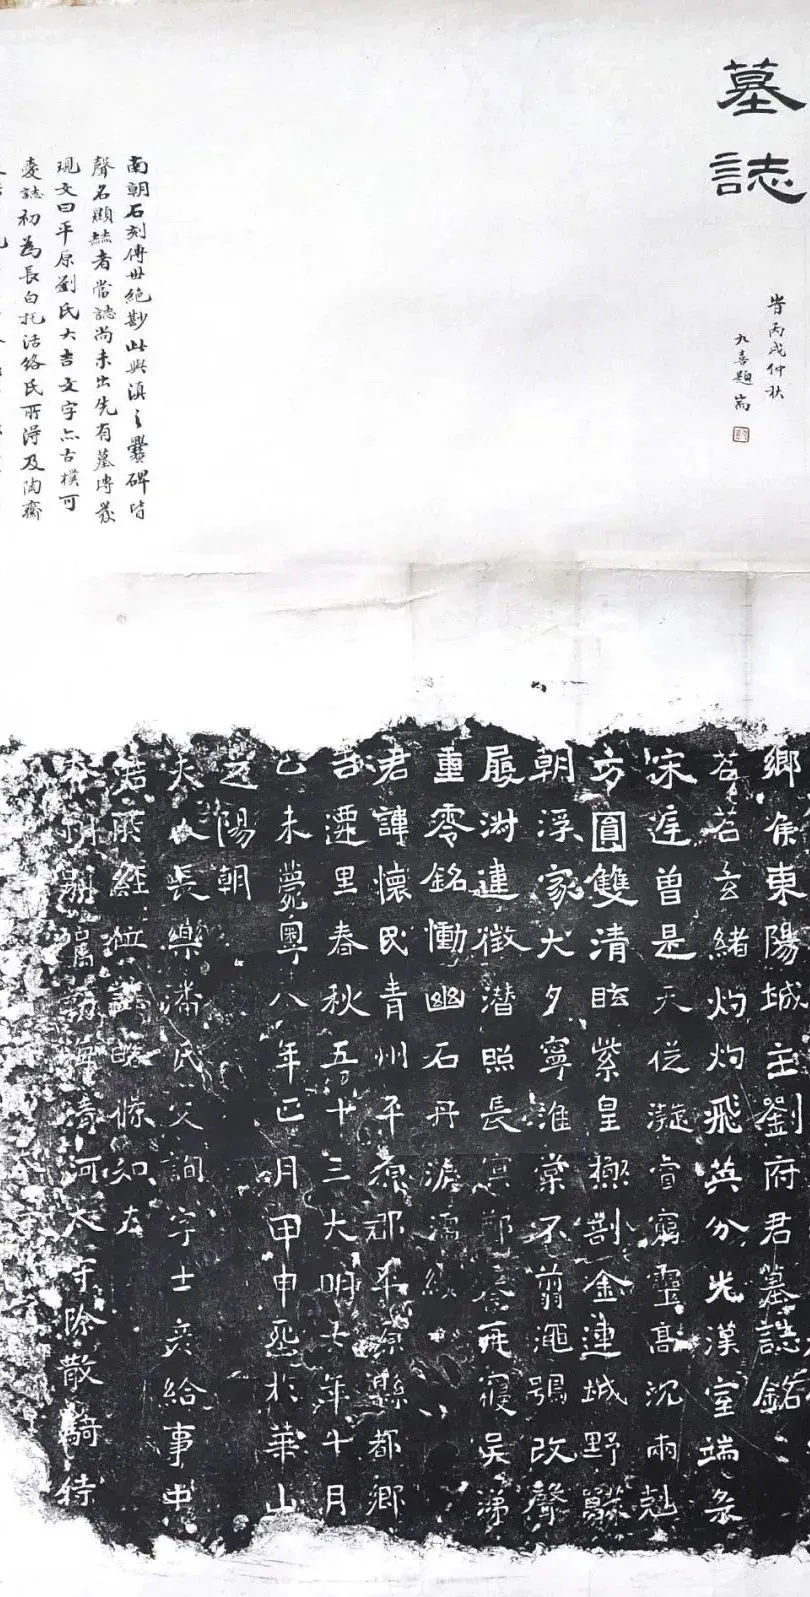 墓誌
昔丙戌仲秋
九喜題耑
南朝石刻傳世絕尠此與滇之爨碑皆
聲名顯赫者當誌尚未出先有墓塼發
現文曰平原劉氏大吉文字亦古樸可
愛誌初為長白托活絡氏所得及陶齋
鄉侯東陽城主劉府君墓誌銘
苕苕玄緒灼灼飛英分光漢室端彔
宋庭曾是天從凝睿窮靈高沉兩剋
方圓雙清眩紫皇極剖金連城野獸
朝浮家犬夕寧淮棠不翦澠鴞改聲
履淑違徵潛照長冥鄭琴再寢吳涕
重零銘慟幽石丹淚濡纓
君諱懷民青州平原郡平原縣都鄉
吉遷里春秋五十三大明七年十月
己未薨粵八年正月甲申塟於華山
之陽朝
夫人長樂潘氏父詢字士彥給事中
君所經位誥條如左
本州別駕勃海清河太守除散騎侍